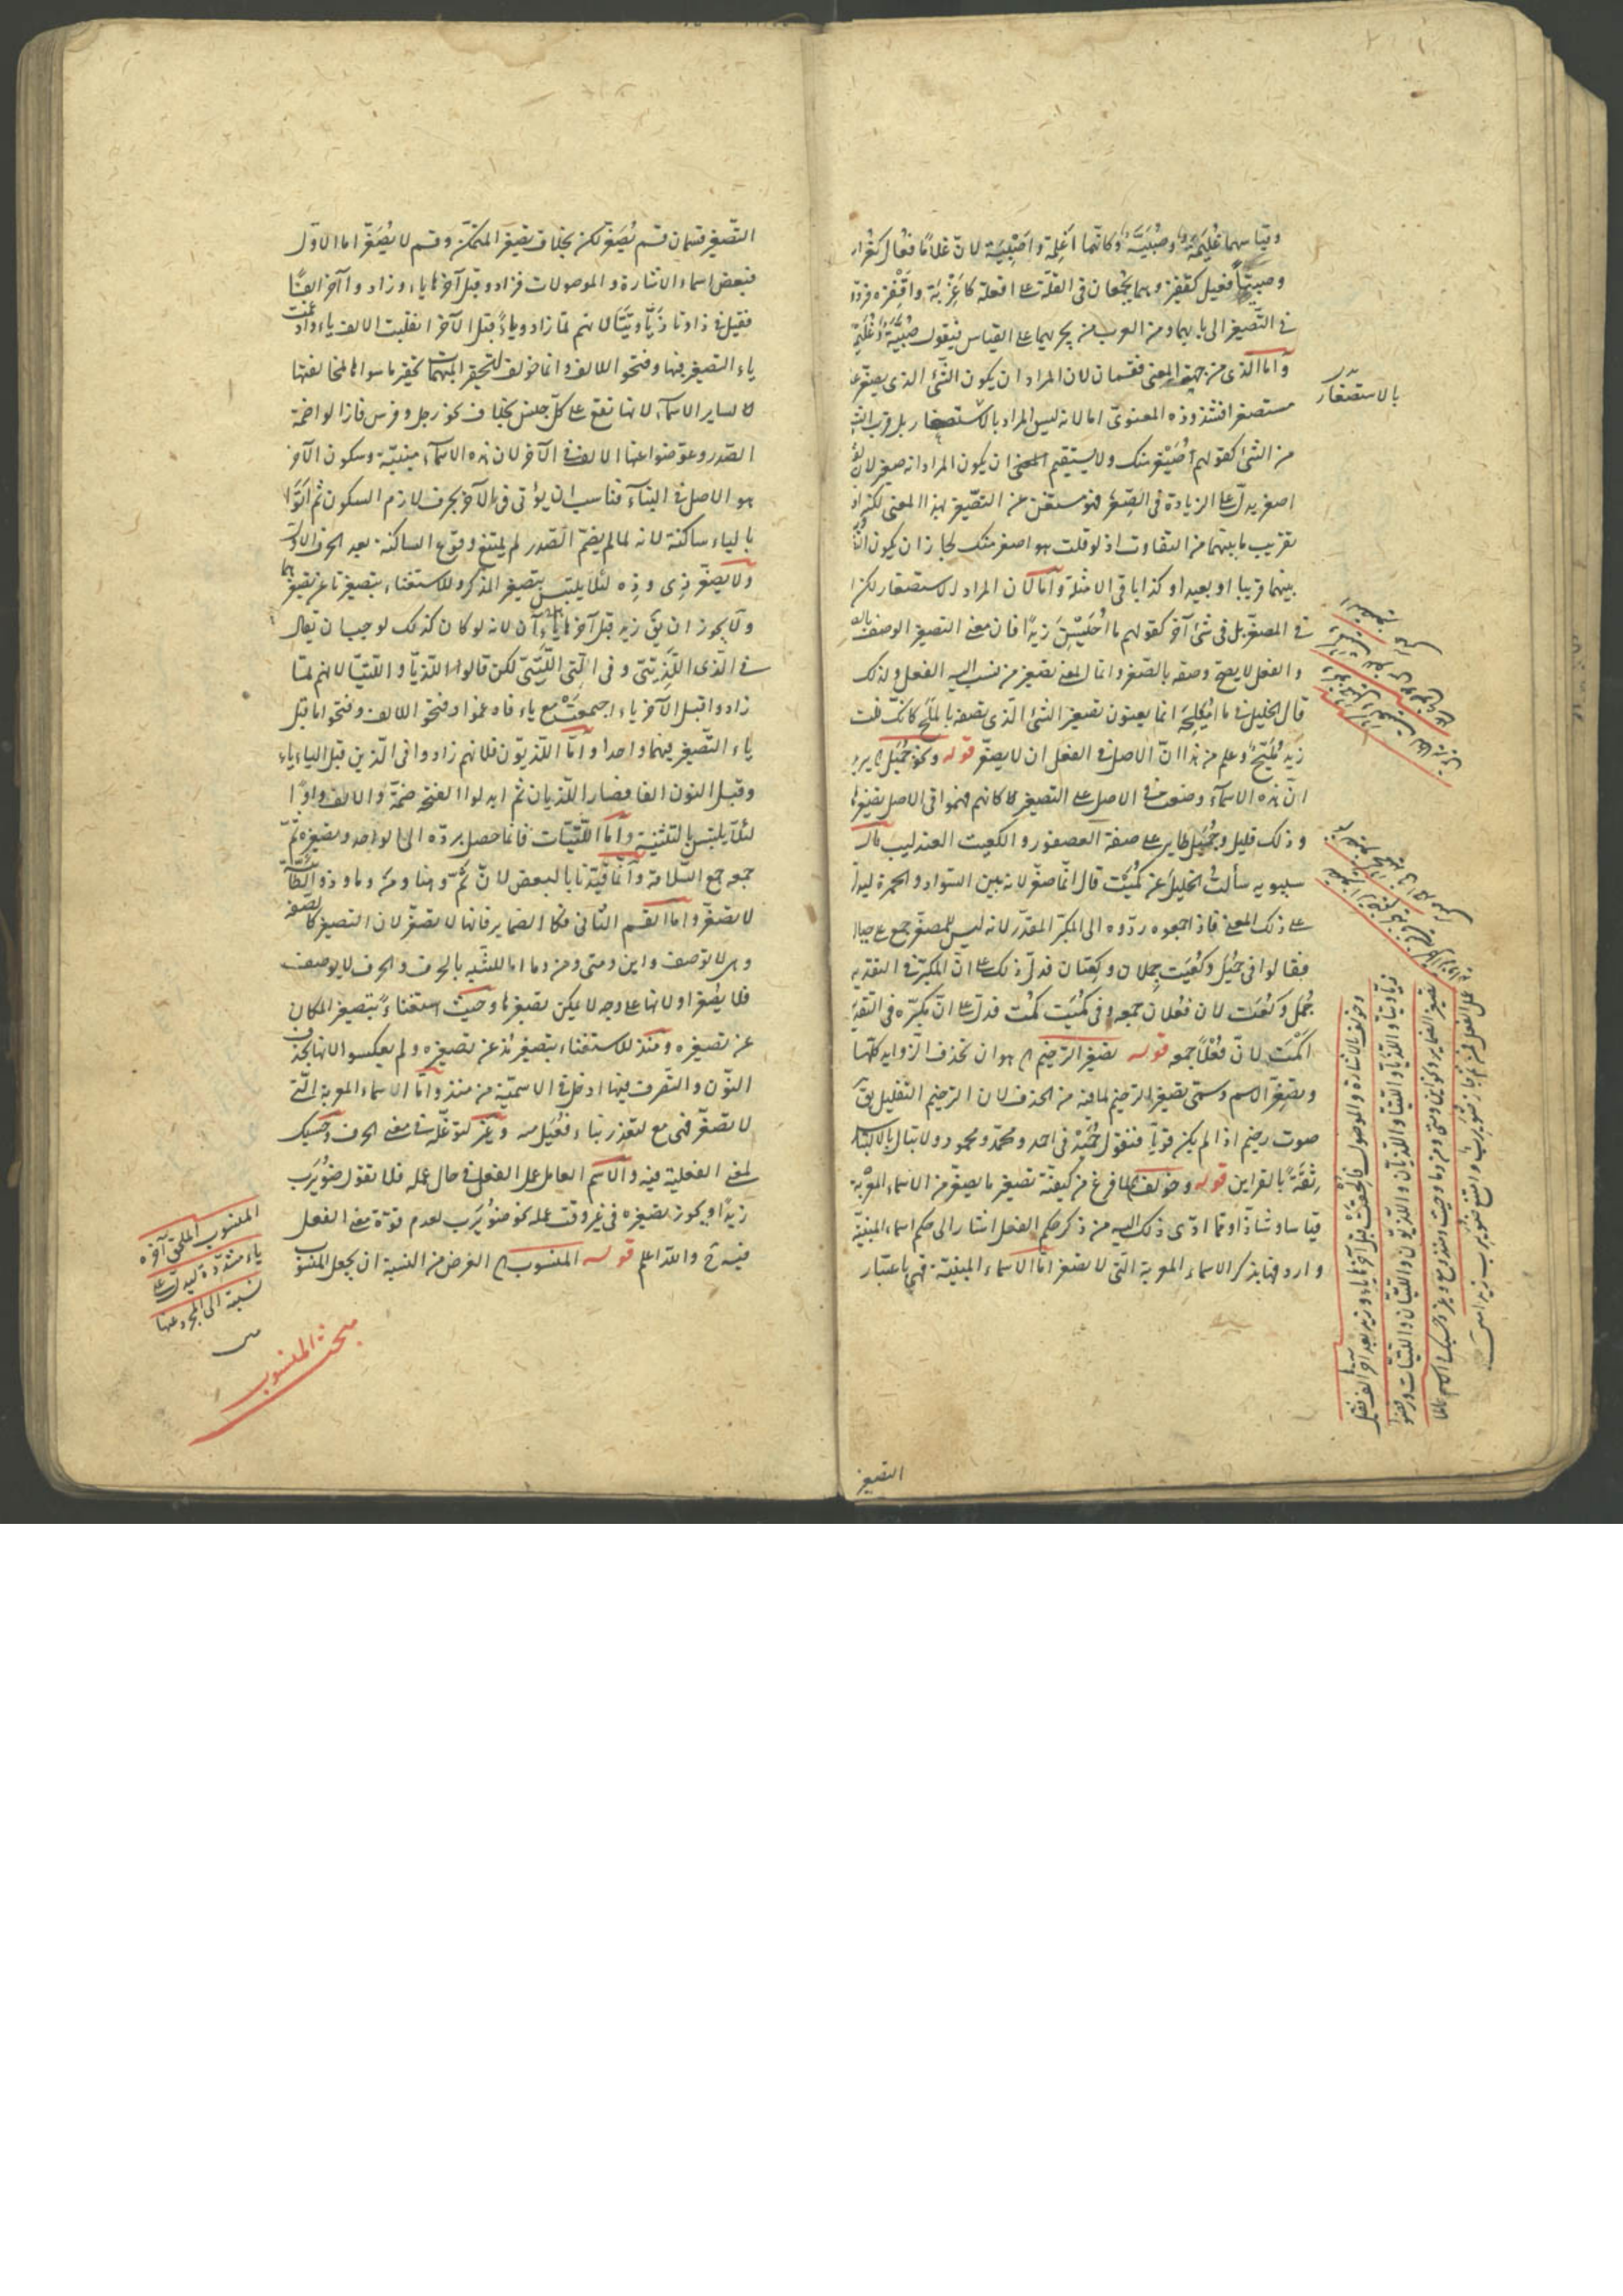 وقياسهما غُلَيْمَة وصُبَيَّة وكانّهما اغلمة واصبية لان غلامًا فُعَال كغُراب
وصبيّا فعيل كقفيز وهما يجمعان فى القلّة على افعلة كاغربة واقفزة فردّ
فى التصغير الى بابهما ومن العرب من يجريهما على القياس فيقول صُبَيَّة وغُلَيْمة
وامّا الذى من جهة المعنى فقسمان لان المراد ان يكون الشئ الذى يصغر
مستصغرا فشذوذه المعنوىّ اما لانه ليس المراد بالاستصغار بل قرب الشئ
من الشئ كقولهم اُصَيْغر منك ولا يستقيم ان يكون المراد انه صغير لان
اصغر يدلّ على الزيادة فى الصّغر فهو مستغن عن التصغير بهذا المعنى لكن
تقريب ما بينهما من التفاوت اذ لو قلت هو اصغر منك لجاز ان يكون
بينهما قريبا او بعيدا وكذا باقى الامثلة وامّا لان المراد الاستصغار لكن لا
فى المصغّر بل فى شئ آخر كقولهم ما اُحَيْسِنَ زيدًا فان معنى التصغير الوصف
والفعل لا يصحّ وصفه بالصّغر وانما المعنى تصغير من نسب اليه الفعل ولذلك
قال الخليل فى ما اُمَيْلِحَ انما يعنون تصغير الشئ الذى تصفه بالملح كانك قلت
زيد مُلَيّح وعلم من هذا انّ الاصل فى الفعل ان لا يصغّر قوله ونحو جُمَيْل يريد
انّ هذه الاسماء وضعت فى الاصل على التصغير لكانهم فهموا فى الاصل تصغيرها
وذلك قليل وجُمَيْل طاير على صفة العصفور والكعيت العندليب قال
سيبويه سألت الخليل عن كُمَيْت قال انّما صغّر لانه بين السّواد والحمرة
على ذلك المعنى فاذا جمعوه ردّوه الى المكبّر المقدّر لانه ليس للمصغّر جمع على حياله
فقالوا فى جُمَيْل وكُعَيْت جِملان وكِعتان فدلّ ذلك على انّ المكبّر فى التقدير
جُمَل وكُعَت لان فِعْلان جمعه وفى كُمَيْت كُمْت فدلّ على انّ مكبّره فى التقدير
اكمت لانّ فُعْلًا جمعه قوله تصغير الترخيم هو ان تحذف الزوايد كلّها
ويصغّر الاسم وسمّى تصغير الترخيم لما فيه من الحذف لان الترخيم التقليل يق
صوت رخيم اذا لم يكن قويّا فتقول حُمَيْد فى احمد ومحمّد ومحمود ولا تبال بالالتباس
ثقةً بالقراين قوله وخولف لما فرغ من كيفيّة تصغير ما يصغّر من الاسماء المعربة
قياسا وشاذّا وما ادّى ذلك اليه من ذكر حكم الفعل اشار الى حكم اسماء المبنيّة
واردفها بذكر الاسماء المعربة التى لا تصغّر امّا الاسماء المبنيّة فهى باعتبار
بالاستصغار
وخولف بالاشارة والموصول فألحقت قبل آخرها ياء وزيد بعد آخرها الف فقيل
ذيّا وتيّا واللّذيّا واللّتيّا واللّذيّان واللّتيّان واللّذيّون واللّتيّات ورفضوا
تصغير الضماير ونحو اين ومتى ومن وما وحيث ومنذ ومع وغير وحسبك والاسم عاملا
عمل الفعل فمن ثمّ جاز ضُوَيْرب زيد وامتنع ضويرب زيدا
التصغير
التّصغير قسمان قسم يُصَغّر لكن بخلاف تصغير المتمكّن وقسم لا يُصَغّر اما الاوّل
فبعض اسماء الاشارة والموصولات فزادوا قبل آخرها ياء وزادوا آخرا الفا
فقيل فى ذا وتا ذيّا وتيّا لانهم لمّا زادوا ياءً قبل الآخر انقلبت الالف ياء وادغمت
ياء التصغير فيها وفتحوا للالف وانما خولف لتحقير المبهمات تحقير ما سواها لمخالفتها
لساير الاسماء لانها تقع على كلّ جنس بخلاف نحو رجل وفرس فازالوا ضمّة
الصّدر وعوّضوا عنها الالف فى الآخر لان هذه الاسماء مبنيّة وسكون الآخر
هو الاصل فى البناء فناسب ان يؤتى فى الآخر بحرف لازم السكون ثم اتوا
بالياء ساكنة لانه لما لم يضمّ الصّدر لم يمتنع وقوع الساكنة بعد الحرف الاوّل
ولا يصغّر ذى وذه لئلا يلتبس بتصغير المذكر وللاستغناء بتصغير تا عن تصغيرهما
ولا يجوز ان يق زيد قبل آخرها ياءآن لانه لو كان كذلك لوجب ان يقال
فى الّذى اللّذيتى وفى الّتى اللّتيّى لكن قالوا اللّذيّا واللّتيّا لانهم لمّا
زادوا قبل الآخر ياء اجتمعت مع ياء فادغموا وفتحوا للالف وفتحوا ما قبل
ياء التّصغير فيهما واحدا وامّا اللّذيّون فلانهم زادوا فى الّذين قبل الياء ياء
وقبل النون الفا فصار اللّذيان ثم ابدلوا الفتح ضمّة والالف واوًا
لئلّا يلتبس بالتثنية وامّا اللّتيّات فانما حصل بردّه الى الواحد وتصغيره ثمّ
جمعه جمع السّلامة وانما قيّدنا بالبعض لانّ ثمّ وهنا ومن وما وذو الطّائية
لا تصغّر واما القسم الثانى فكالضماير فانها لا تصغّر لان التصغير كالصفة
وهى لا توصف واين ومتى ومن وما اما للشبه بالحرف والحرف لا يوصف
فلا يصغّر او لانها على وجه لا يمكن تصغيرها وحيث استغناءً بتصغير المكان
عن تصغيره ومنذ للاستغناء بتصغير مُذ عن تصغيره ولم يعكسوا لانها بحذف
النّون والتصرف فيها ادخل فى الاسميّة من منذ وامّا الاسماء المعربة الّتى
لا تصغّر فهى مع لتعذر بناء فُعَيْل منه وغير لتوغّله فى معنى الحرف وحسبك
لمعنى الفعلية فيه والاسم العامل عمل الفعل فى حال عمله فلا تقول ضُوَيْرب
زيدًا ويجوز تصغيره فى غير وقت عمله نحو ضُوَيْرب لعدم قوّة معنى الفعل
فيه ح والله اعلم قوله المنسوب الغرض من النسبة ان يجعل المنسوب
المنسوب الملحق آخره
ياء مشدّدة ليدلّ على
نسبة الى المجرّد عنها
بحث المنسوب